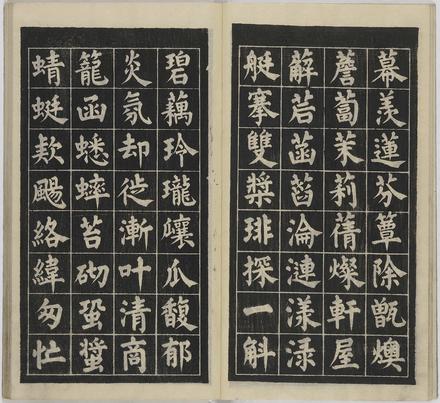 慕羨蓮芬簟除甑燠
薝蔔茉莉蒨燦軒屋
薢茩菡萏淪漣漾渌
艇搴雙槳琲探一斛
碧藕玲瓏瓤瓜馥郁
炎氛却徙漸叶清商
籠函蟋蟀苔砌蛩螿
蜻蜓欵颸絡緯匆忙